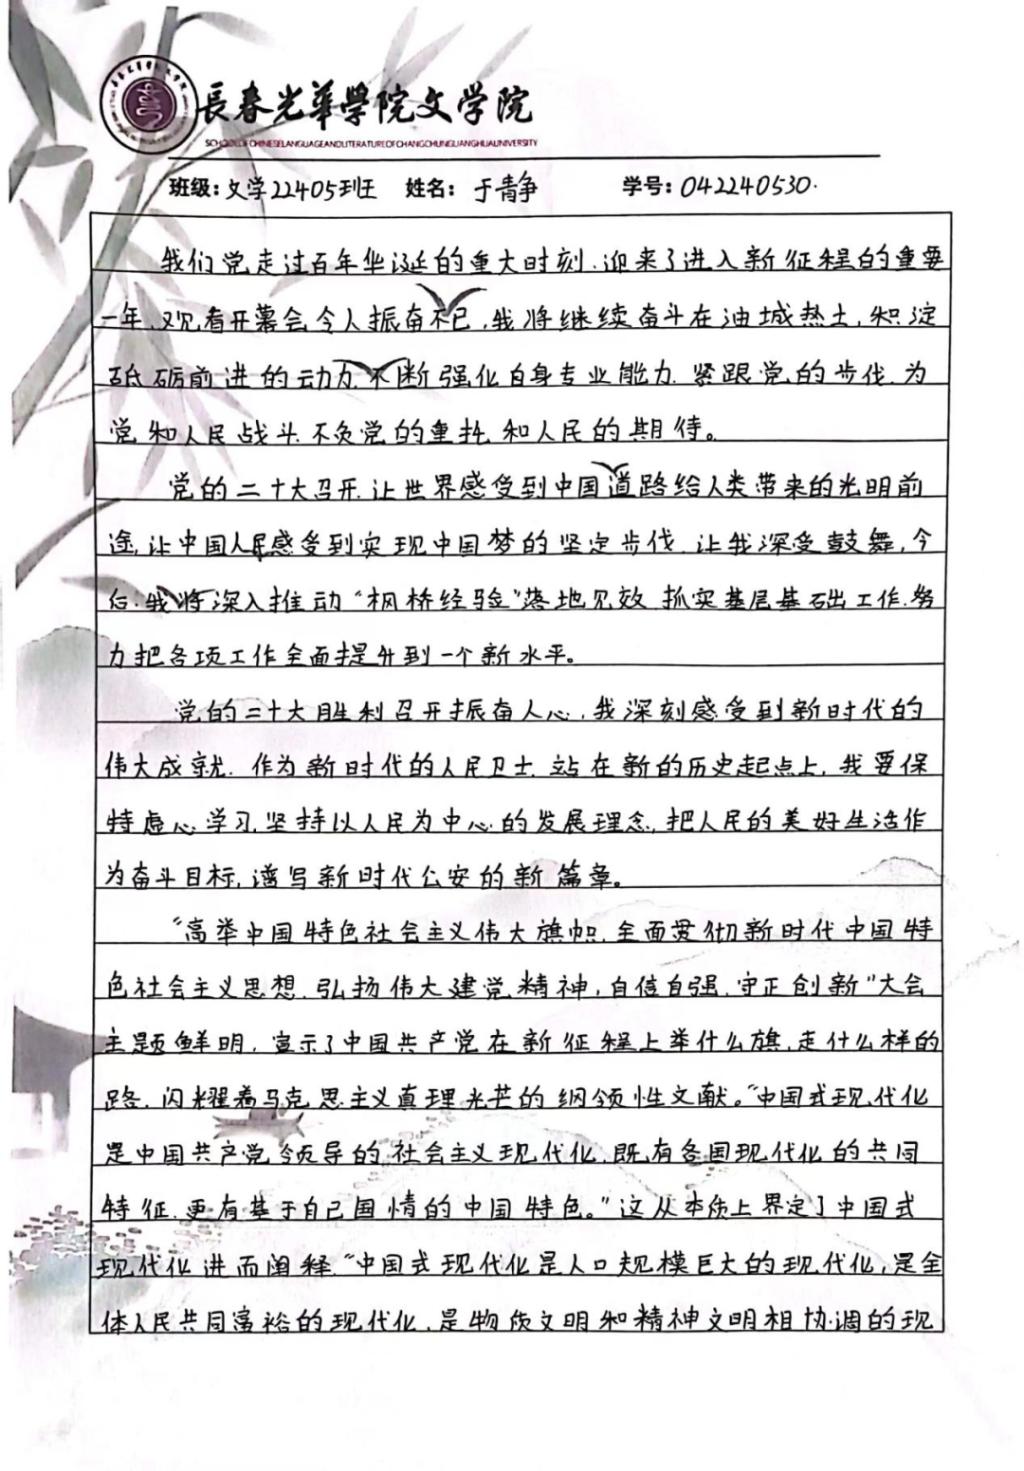 長春光華學院文学院
SCHOOL OF CHINESE LANGUAGE AND LITERATURE OF CHANGCHUN GUANGHUA UNIVERSITY
班级:文学22405班 姓名:于静 学号:042240530.
我们党走过百年华诞的重大时刻,迎来了进入新征程的重要
一年,观看开幕会令人振奋不已,我将继续奋斗在油城热土,积淀
砥砺前进的动力,不断强化自身专业能力,紧跟党的步伐,为
党和人民战斗,不负党的重托和人民的期待。
党的二十大召开,让世界感受到中国道路给人类带来的光明前
途,让中国人民感受到实现中国梦的坚定步伐,让我深受鼓舞,今
后,我将深入推动“枫桥经验”落地见效,抓实基层基础工作,努
力把各项工作全面提升到一个新水平。
党的二十大胜利召开振奋人心,我深刻感受到新时代的
伟大成就,作为新时代的人民卫士,站在新的历史起点上,我要保
持虚心学习,坚持以人民为中心的发展理念,把人民的美好生活作
为奋斗目标,谱写新时代公安的新篇章。
“高举中国特色社会主义伟大旗帜,全面贯彻新时代中国特
色社会主义思想,弘扬伟大建党精神,自信自强,守正创新”大会
主题鲜明,宣示了中国共产党在新征程上举什么旗,走什么样的
路,闪耀着马克思主义真理光芒的纲领性文献。“中国式现代化
是中国共产党领导的社会主义现代化,既有各国现代化的共同
特征,更有基于自己国情的中国特色。”这从本质上界定了中国式
现代化进而阐释:“中国式现代化是人口规模巨大的现代化,是全
体人民共同富裕的现代化,是物质文明和精神文明相协调的现